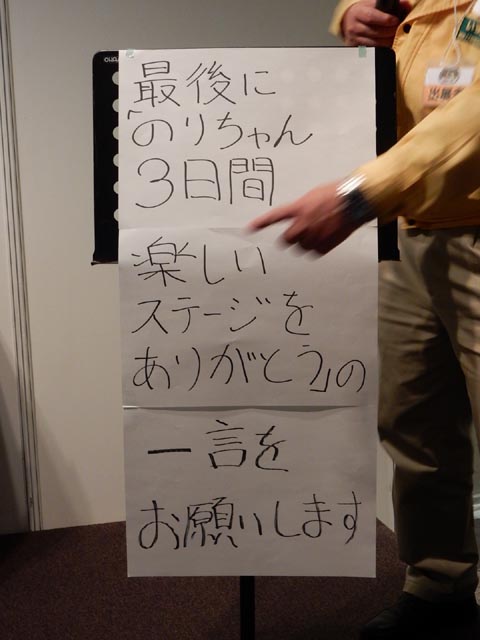 最後に
「のりちゃん
3日間
楽しい
ステージを
ありがとう」の
一言を
お願いします
出展